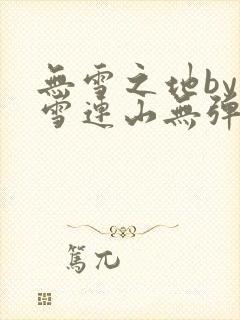 無雪之地by
雪連山無彈
篤兀